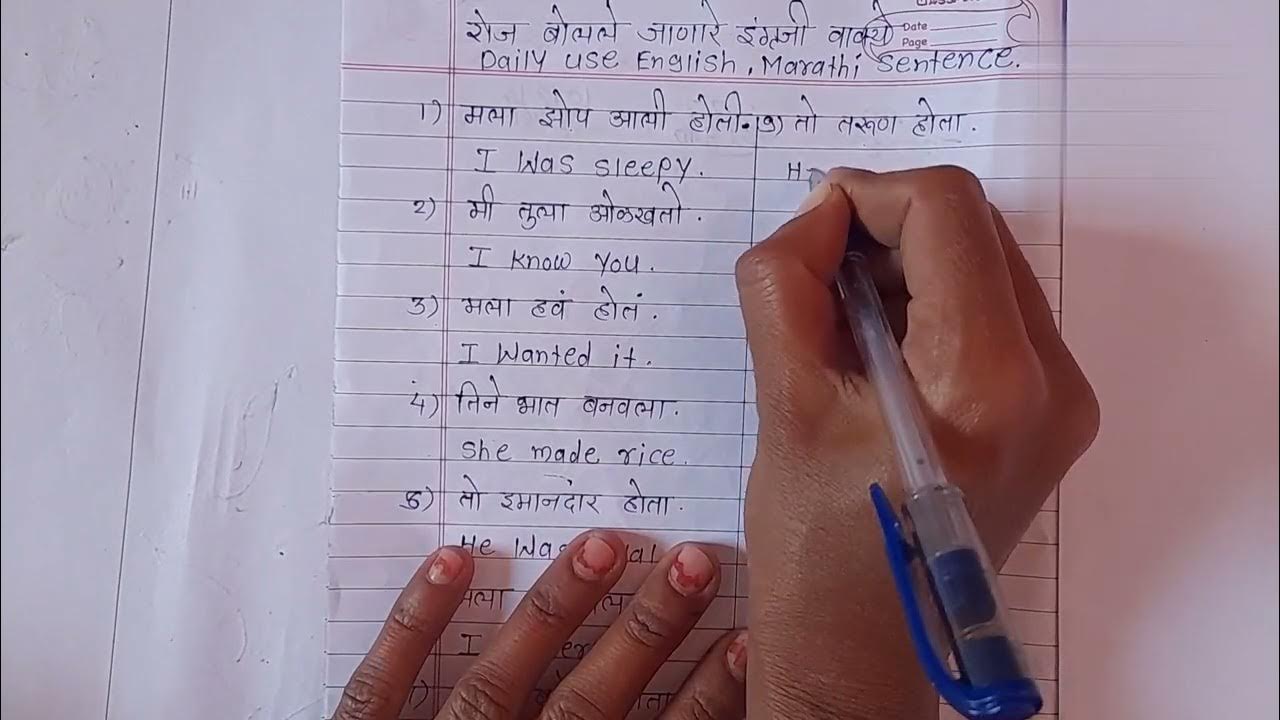 Date
Page
रोज बोलले जाणारे इंग्रजी वाक्ये
Daily use English, Marathi Sentence.
1) मला झोप आली होली.
I Was sleepy.
2) मी तुला ओळखतो.
I know you.
3) मला हवं होतं.
I Wanted it.
4) तिने भात बनवला.
she made rice.
5) तो इमानदार होता.
He
मला
I
9) तो तरूण होता.
H